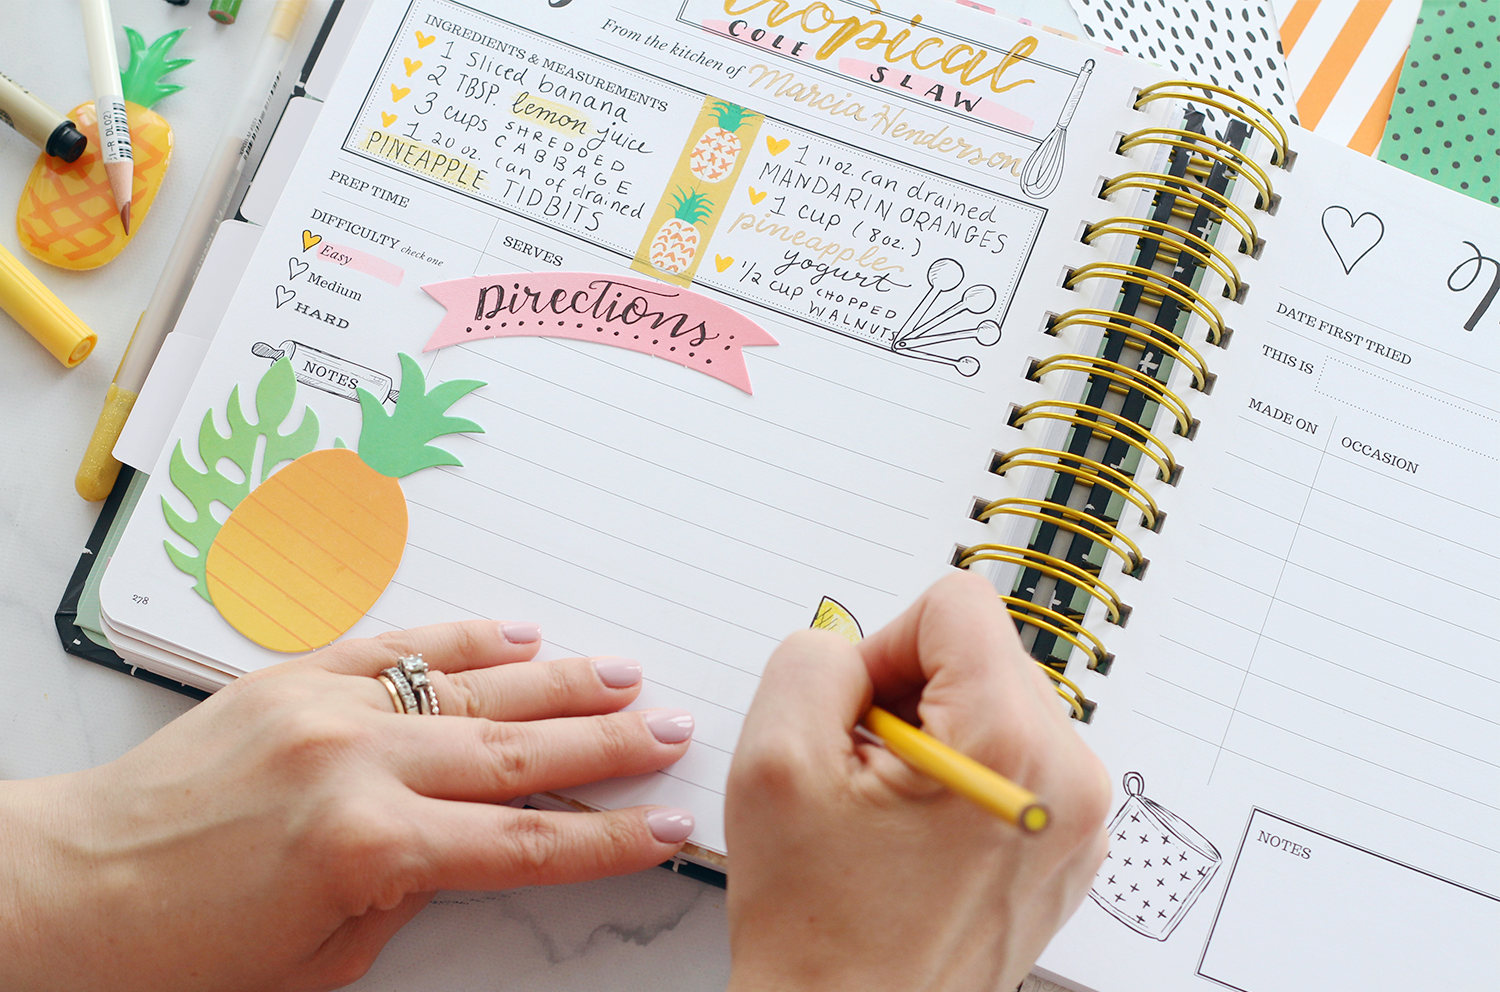 tropical
COLE SLAW
From the kitchen of Marcia Henderson
INGREDIENTS & MEASUREMENTS
1 sliced banana
2 TBSP. lemon juice
3 cups SHREDDED
CABBAGE
1 20 oz. can of drained
PINEAPPLE TIDBITS
1 11 oz. can drained
MANDARIN ORANGES
1 CUP (8oz.)
pineapple
yogurt
1/2 CUP CHOPPED
WALNUTS
PREP TIME
SERVES
DIFFICULTY check one
Easy
Medium
HARD
Directions:
NOTES
278
DATE FIRST TRIED
THIS IS
MADE ON
OCCASION
NOTES